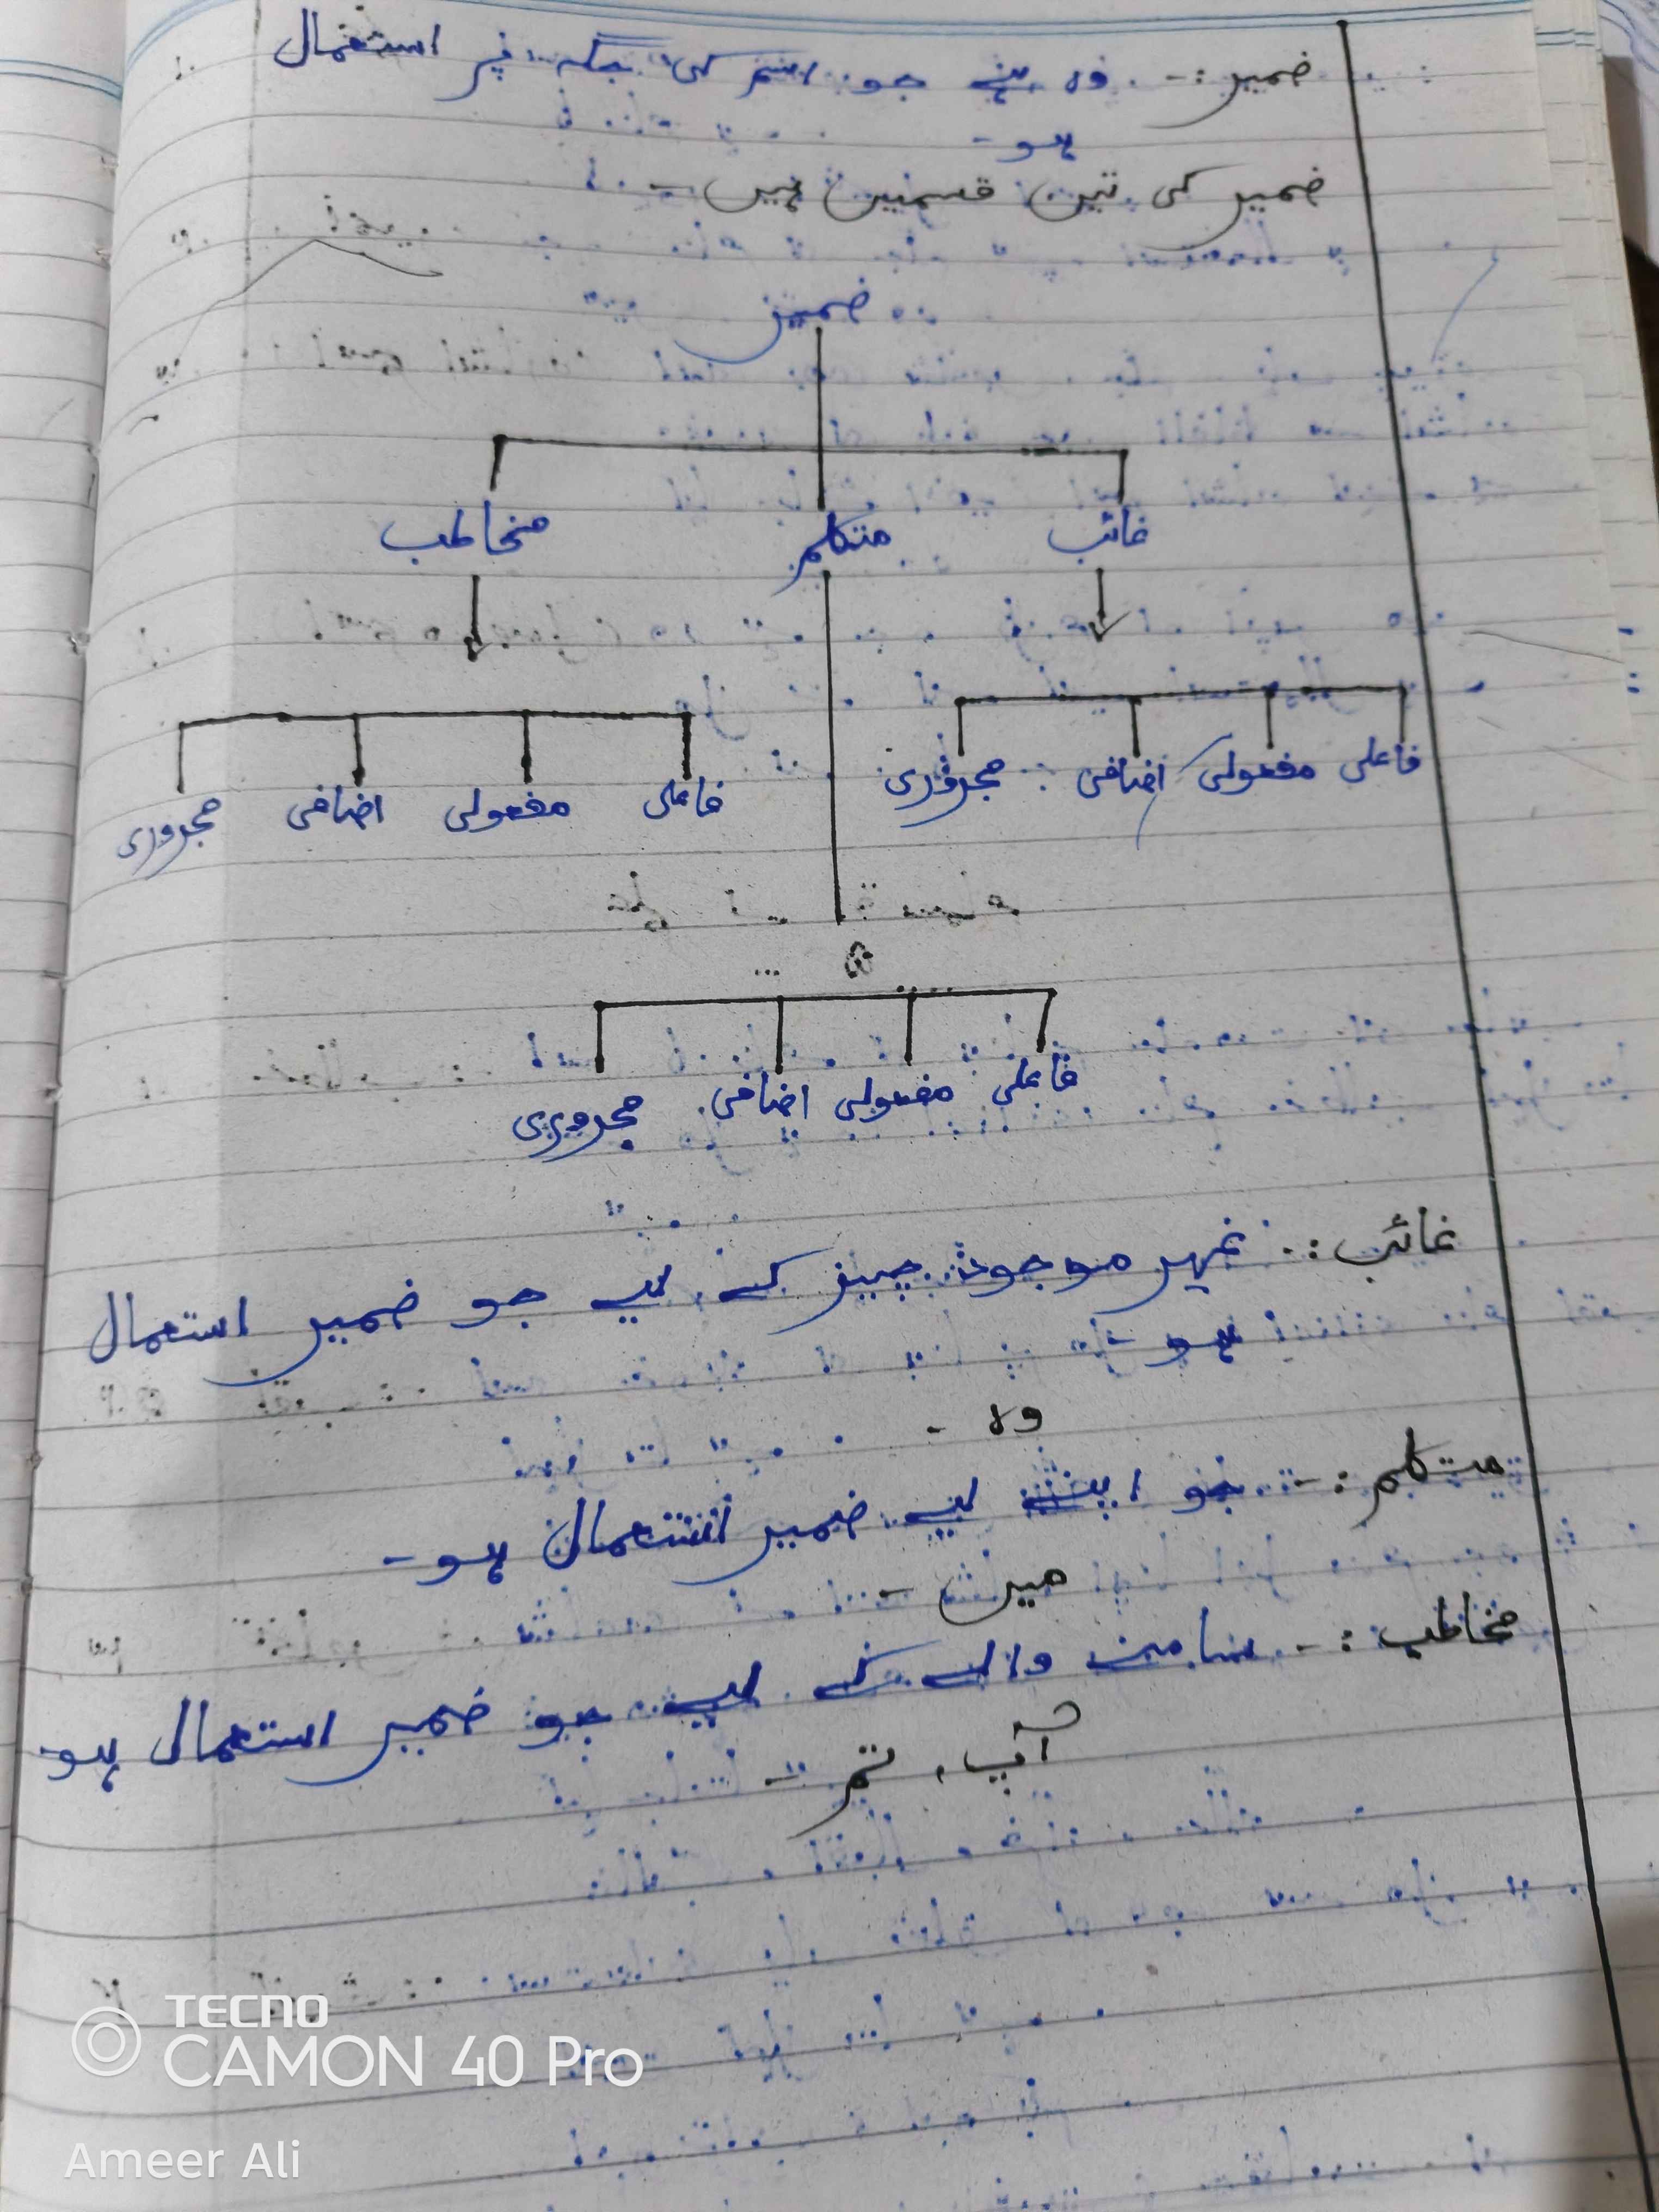 ضمیر :- وہ ہے جو اسم کی جگہ پر استعمال
ہو-
ضمیر کی تین قسمیں ہیں-
ضمیر
غائب متکلم مخاطب
فاعلی مفعولی اضافی مجروری
فاعلی مفعولی اضافی مجروری
فاعلی مفعولی اضافی مجروری
غائب :- غیر موجود چیز کے لیے جو ضمیر استعمال
ہو-
وہ -
متکلم :- جو اپنے لیے ضمیر استعمال ہو-
میں -
مخاطب :- سامنے والے کے لیے جو ضمیر استعمال ہو-
آپ، تم -
TECNO
CAMON 40 Pro
Ameer Ali